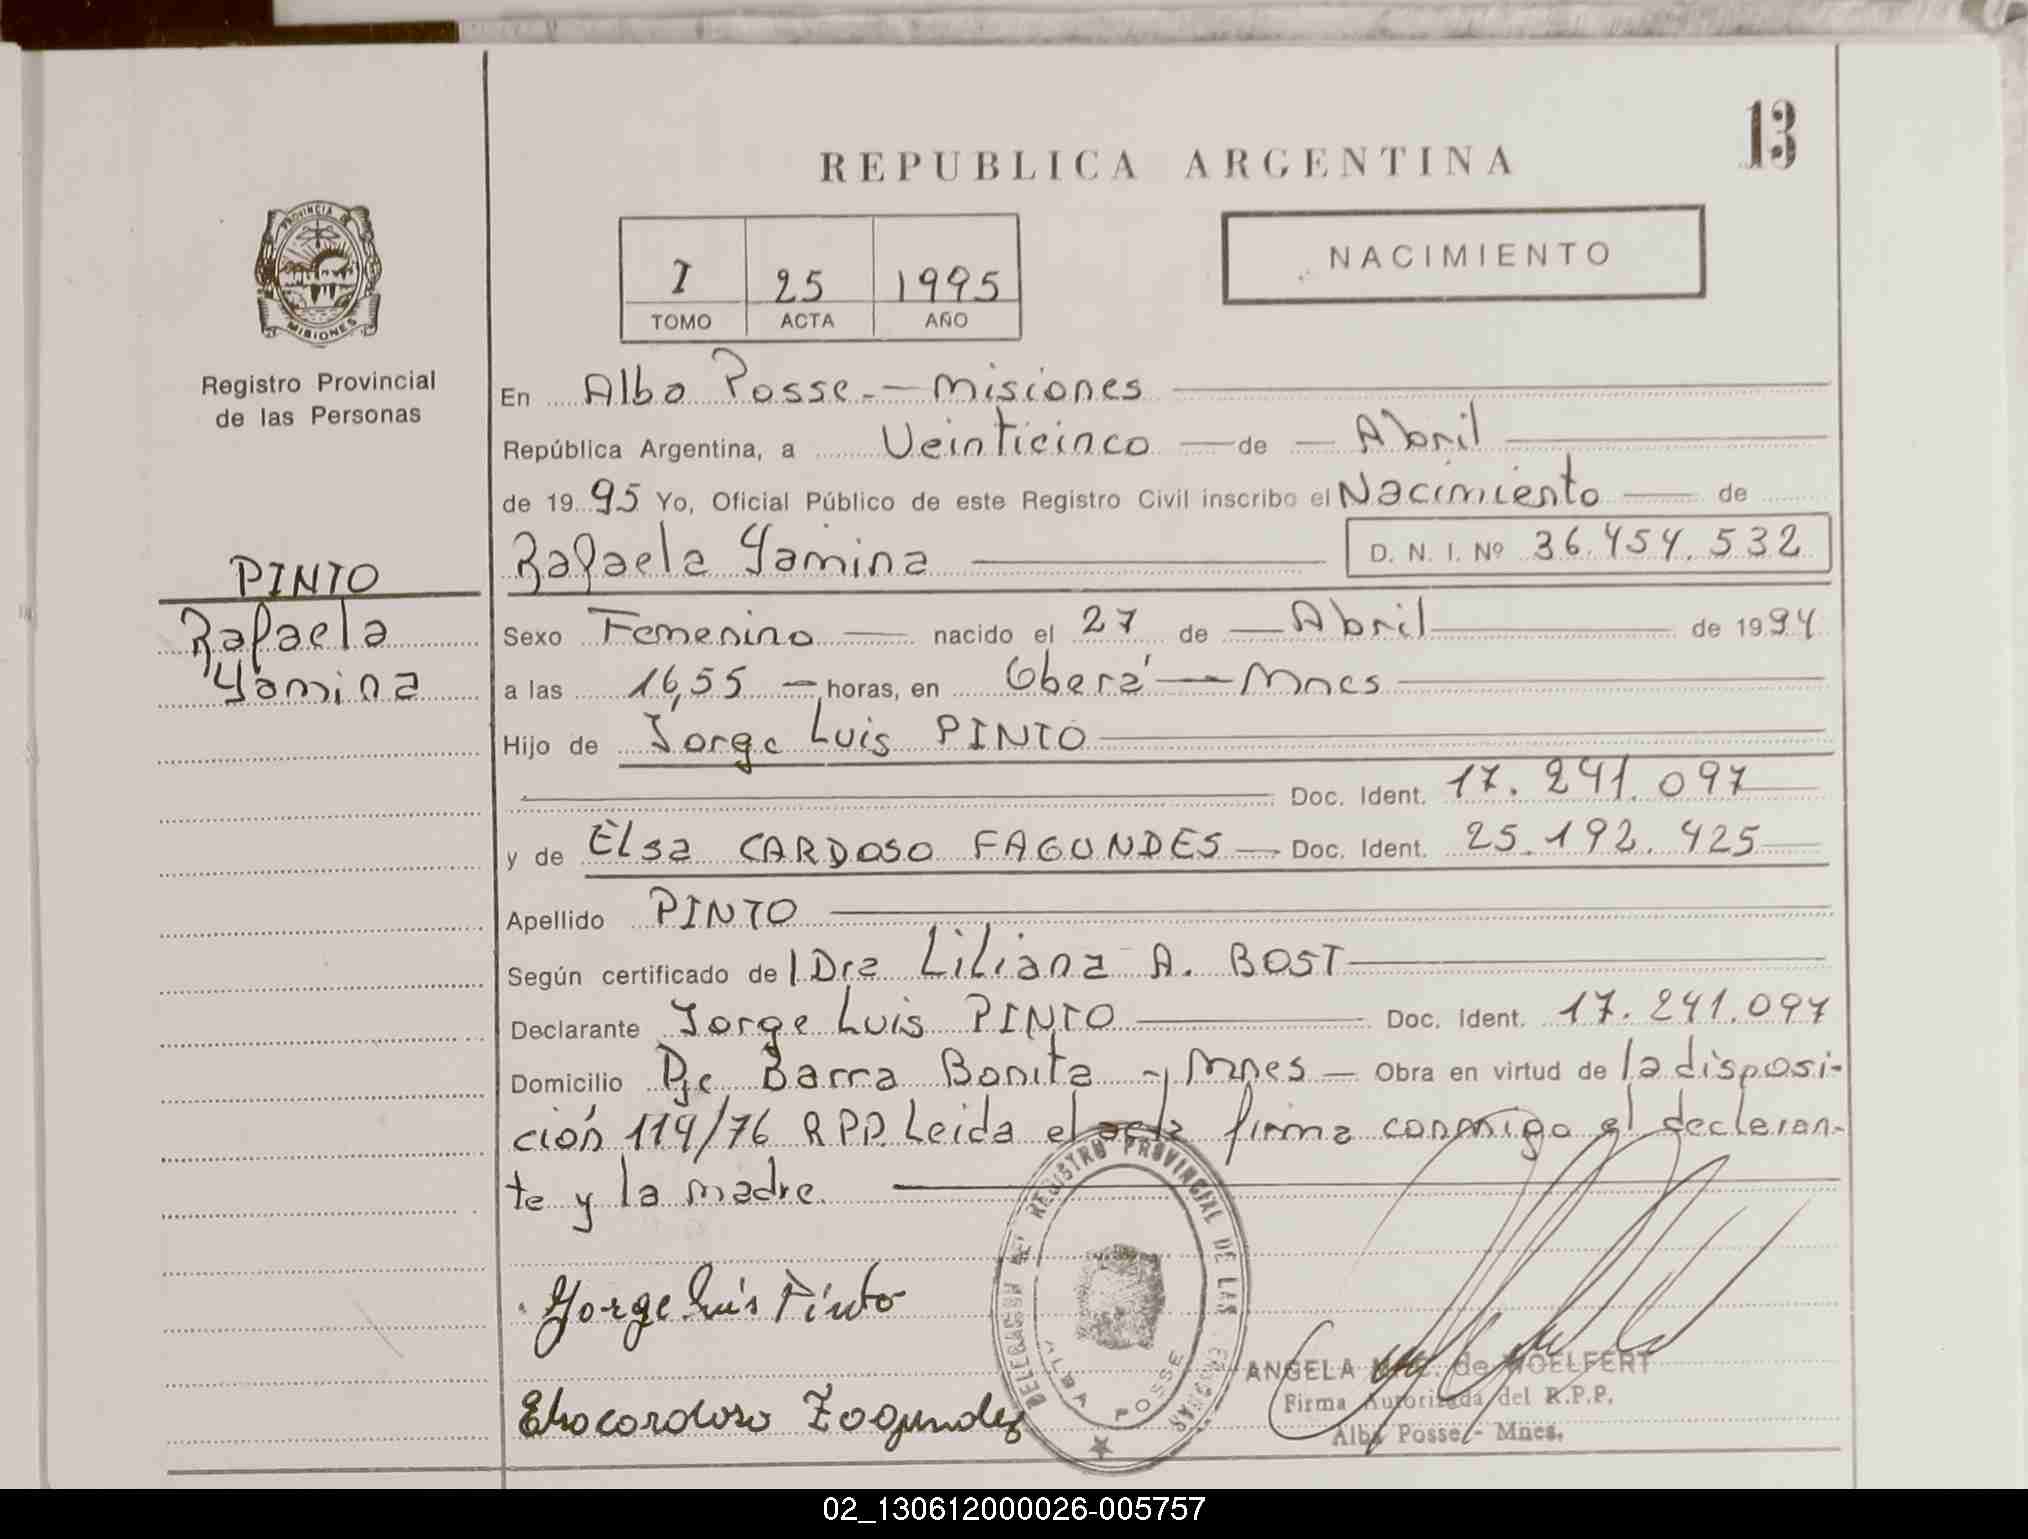 13
REPUBLICA ARGENTINA
PROVINCIA DE
MISIONES
Registro Provincial
de las Personas
I 25 1995
TOMO ACTA AÑO
NACIMIENTO
En Alba Posse - Misiones
República Argentina, a Veinticinco de Abril
de 1995 Yo, Oficial Público de este Registro Civil inscribo el Nacimiento de
PINTO
Rafaela Yamina
Rafaela Yamina D. N. I. Nº 36.454.532
Sexo Femenino nacido el 27 de Abril de 1994
a las 16,55 horas, en Oberá - Mnes
Hijo de Jorge Luis PINTO
Doc. Ident. 17.241.097
y de Elsa CARDOSO FAGUNDES Doc. Ident. 25.192.425
Apellido PINTO
Según certificado de Dra Liliana A. BOST
Declarante Jorge Luis PINTO Doc. Ident. 17.241.097
Domicilio Pje Barra Bonita - Mnes - Obra en virtud de la disposi-
ción 119/76 RPP. Leida el acta firma conmigo el declaran-
te y la madre.
Jorge Luis Pinto
Elsa cardoso Fagundez
DELEGACION DEL REGISTRO PROVINCIAL DE LAS PERSONAS
ALBA POSSE
ANGELA de WOELFERT
Firma Autorizada del R.P.P.
Alba Posse - Mnes.
02_130612000026-005757